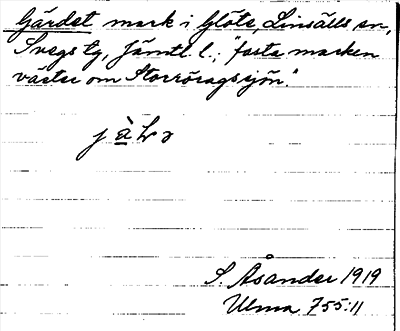 Gärdet mark i Glöte, Linsälls sn,
Svegs tg, Jämtl. l.; "fasta marken
väster om Storrörågssjön."
S. Åsander 1919
Ulma 755:11